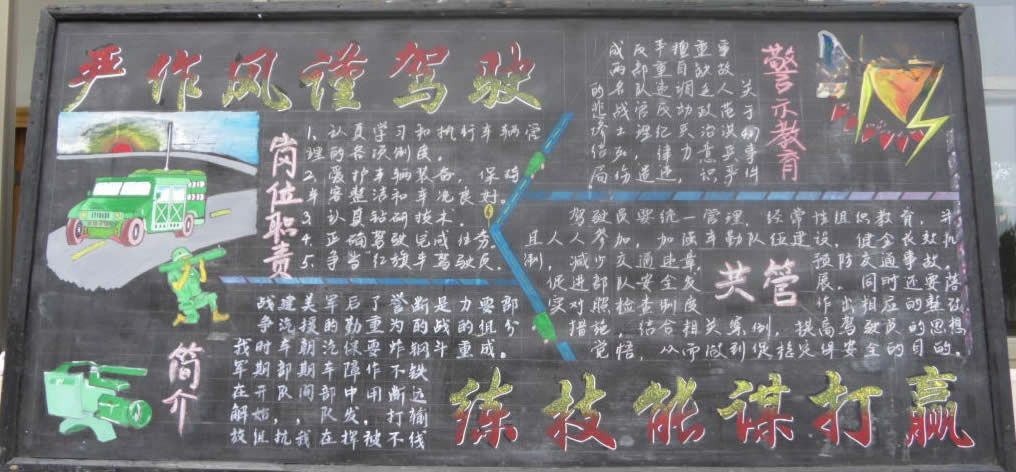 严作风谨驾驶
岗位职责
1. 认真学习和执行车辆管
理的各项制度。
2. 爱护车辆装备，保持
车容整洁和车况良好。
3. 认真钻研技术。
4. 正确驾驶完成任务。
5. 争当红旗车驾驶员。
警示教育
的悲惨结局
简介
我军在解放
战争时期开始组
建汽车部队，抗
美援朝期间，我
军的汽车部队在
后勤保障中发挥
了重要作用，被
誉为炸不断打不
断的钢铁运输线
是战斗
力的重
要组成
部分。
共管
驾驶员要统一管理，经常性组织教育，
且人人参加，加强车勤队伍建设，健全长效机
制，减少交通违章，预防交通事故，
促进部队安全发展。同时还要落
实对照检查制度作出相应的整改
措施，结合相关案例，提高驾驶员的思想
觉悟，从而做到促稳定保安全的目的。
练技能谋打赢